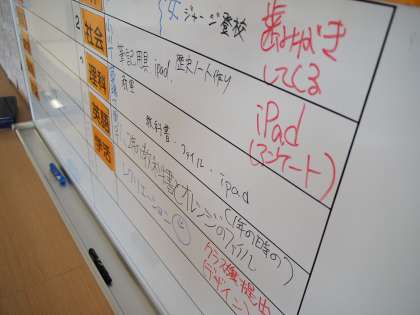 ジャージ登校
歯みがき
してくる
2
社会
筆記用具 ipad 歴史ノート作り
iPad
(アンケート)
理科
教室
教科書・ファイル・ipad
英語
(1年の時の)
教科書とオレンジのファイル
学活
レクリエーション
クラス旗提出
(デザイン)